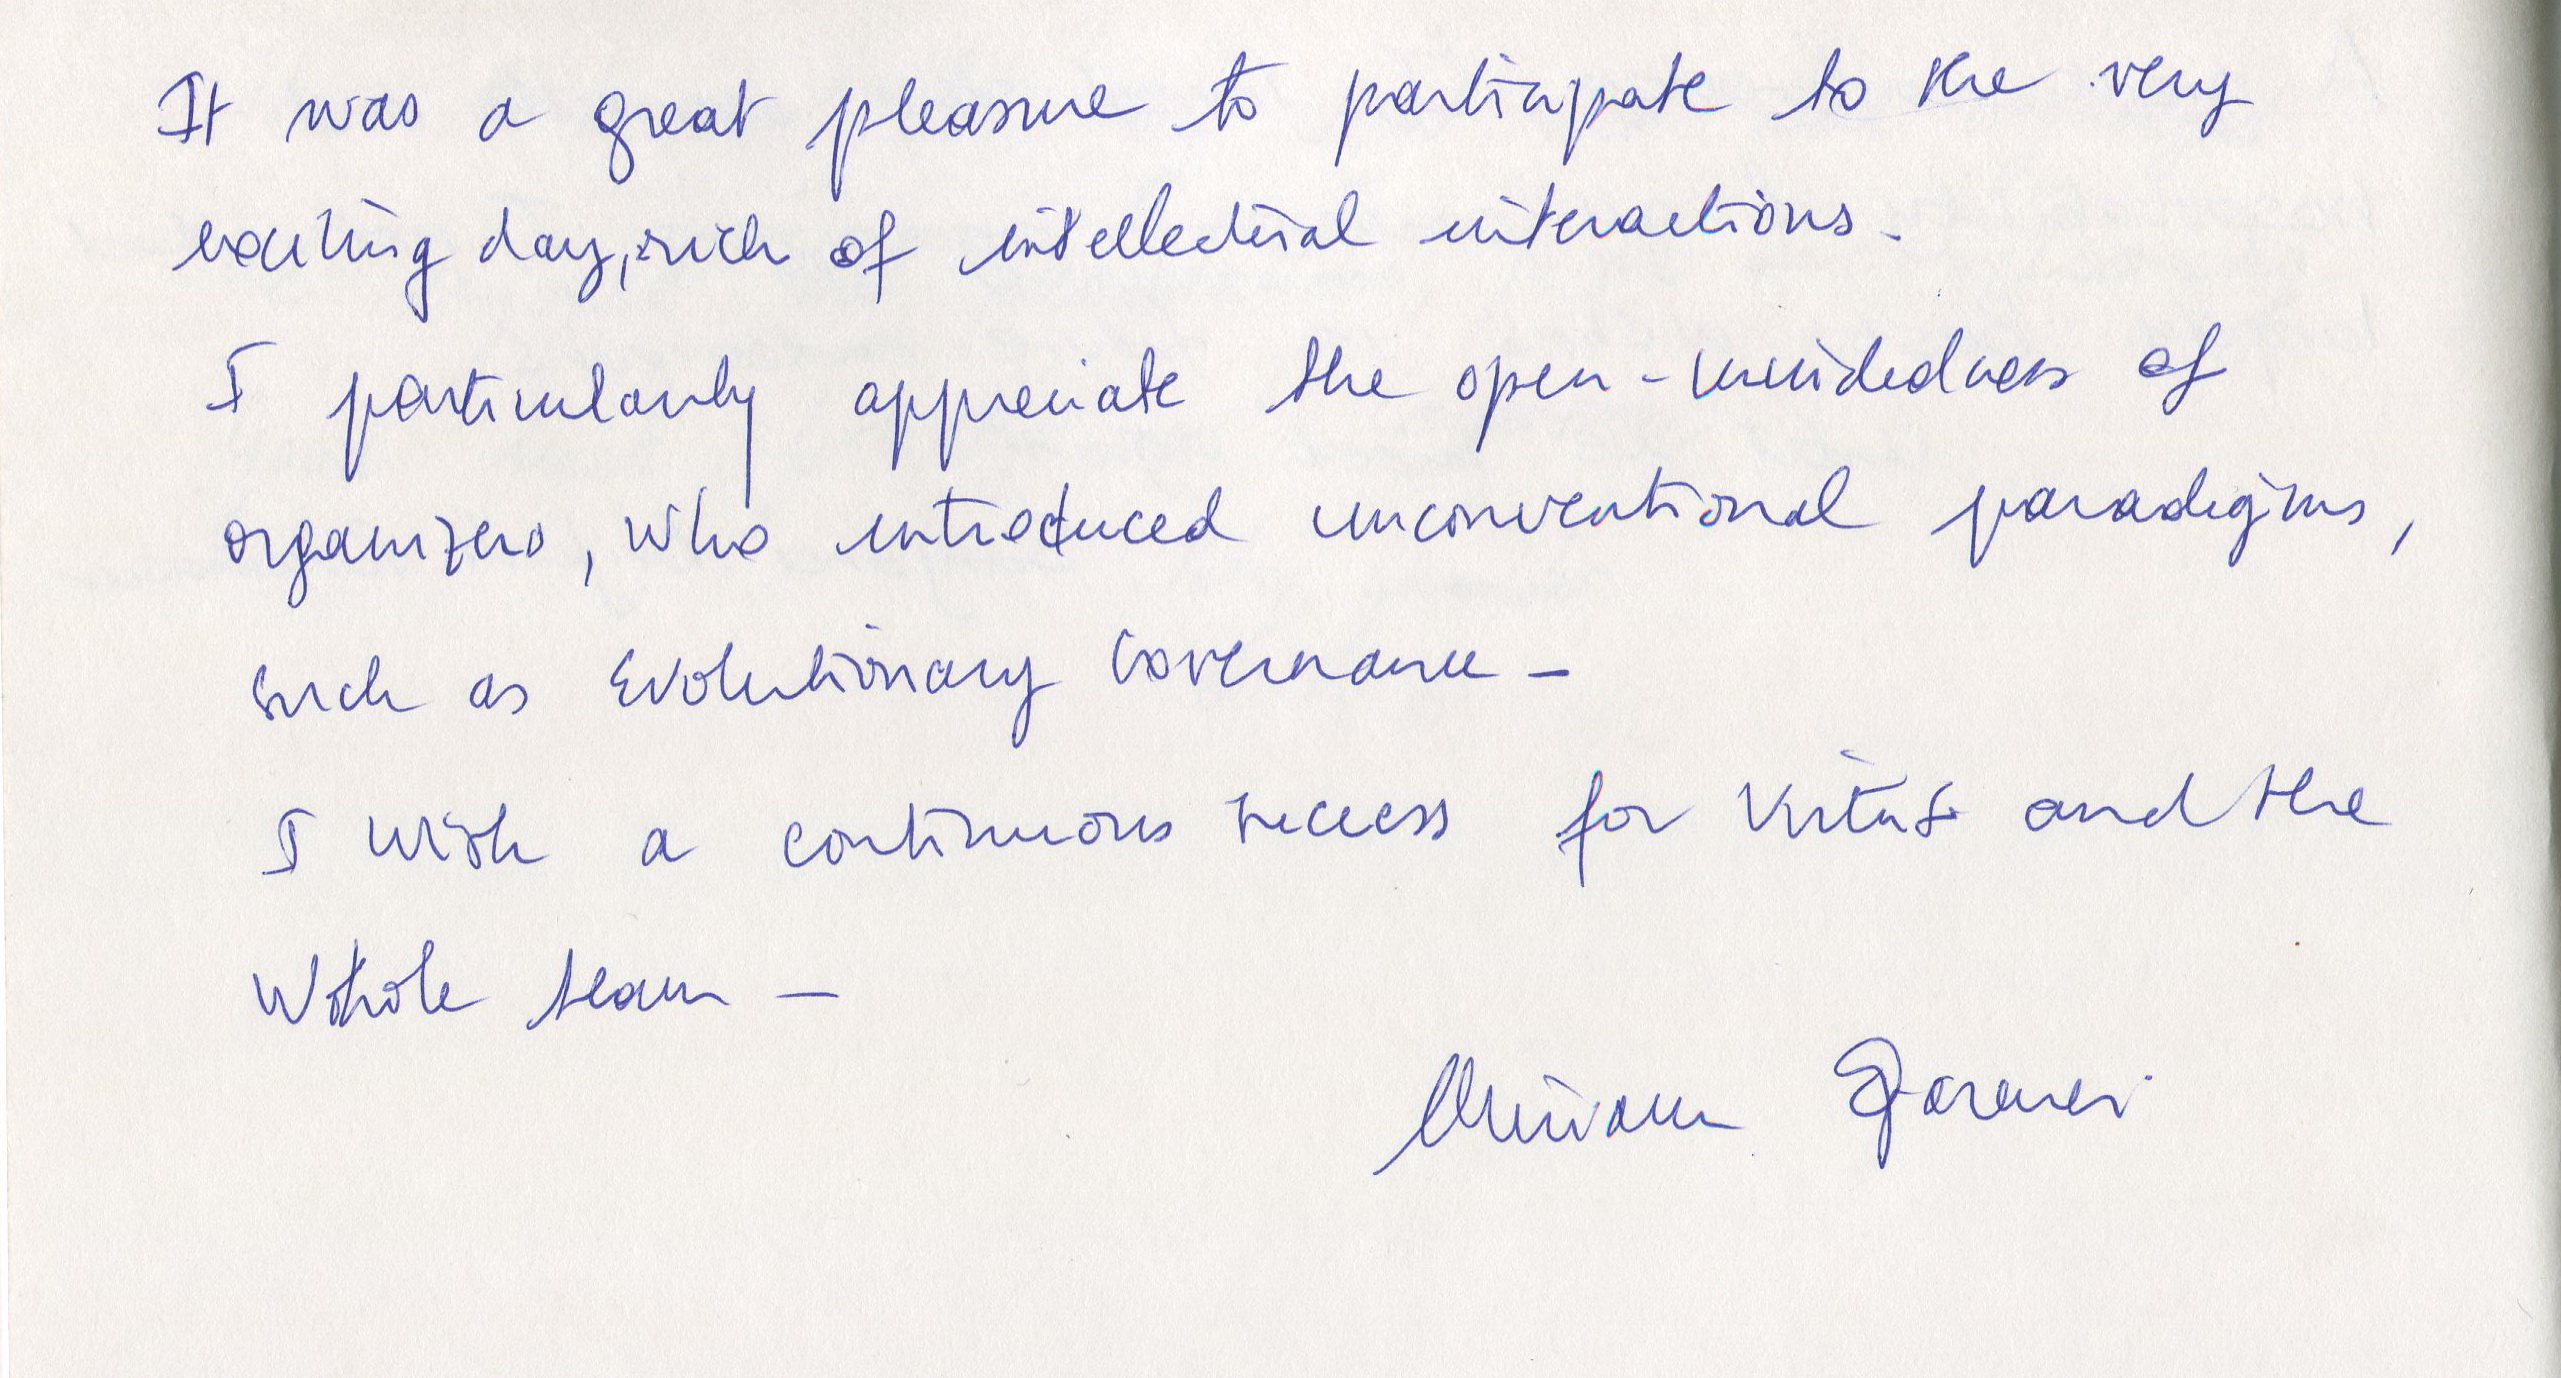 It was a great pleasure to participate to the very
exciting day, rich of intellectual interactions.
I particularly appreciate the open-mindedness of
organizers, who introduced unconventional paradigms,
such as Evolutionary Governance -
I wish a continuous success for and the
Whole team -